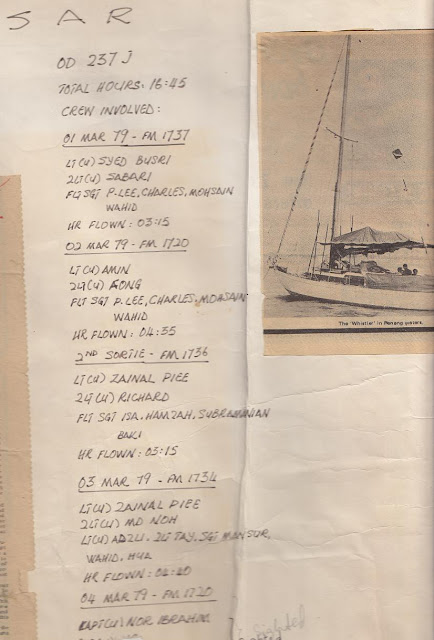 SAR
OD 237 J
TOTAL HOURS: 16:45
CREW INVOLVED:
01 MAR 79 - FM 1737
LT(U) SYED BUSRI
2LT(U) SABARI
FLT SGT P-LEE, CHARLES, MOHSAIN
WAHID
HR FLOWN: 03:15
02 MAR 79 - FM 1720
LT(U) AMIN
2LT(U) FONG
FLT SGT P. LEE, CHARLES, MOHSAIN
WAHID
HR FLOWN: 04:35
2ND SORTIE - FM 1736
LT(U) ZAINAL PIEE
2LT(U) RICHARD
FLT SGT ISA, HAMZAH, SUBRAMANIAN
BAKI
HR FLOWN: 03:15
03 MAR 79 - FM 1734
LT(U) ZAINAL PIEE
2LT(U) MD NOH
LT(U) ADZLI, 2LT TAY, SGT MANSUR,
WAHID, HUA
HR FLOWN: 04:40
04 MAR 79 - FM 1720
KAPT(U) NOR IBRAHIM
The 'Whistler' in Penang waters.